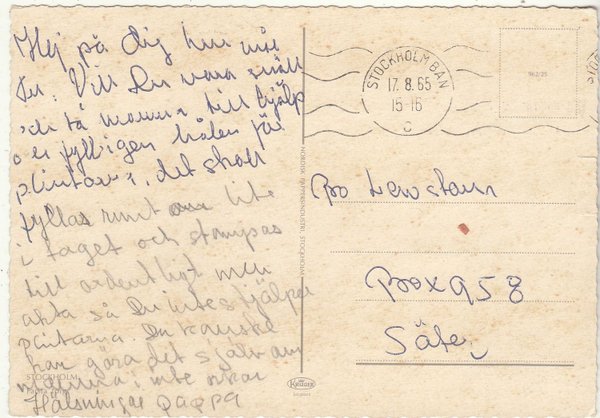 Hej på dig hur mår
Du. Vill Du vara snäll
och ta mamma till hjälp
o er fyll igen hålen för
plintarna, det skall
fyllas runt om lite
i taget och stampas
till ordentligt men
akta så Du inte stjälper
plintarna. Du kanske
kan göra det själv om
mamma inte orkar
Hälsningar pappa
STOCKHOLM
STOCKHOLM BAN
17.8.65
15-16
C
NORDISK PAPPERSINDUSTRI, STOCKHOLM
Bo
Box 958
Säter